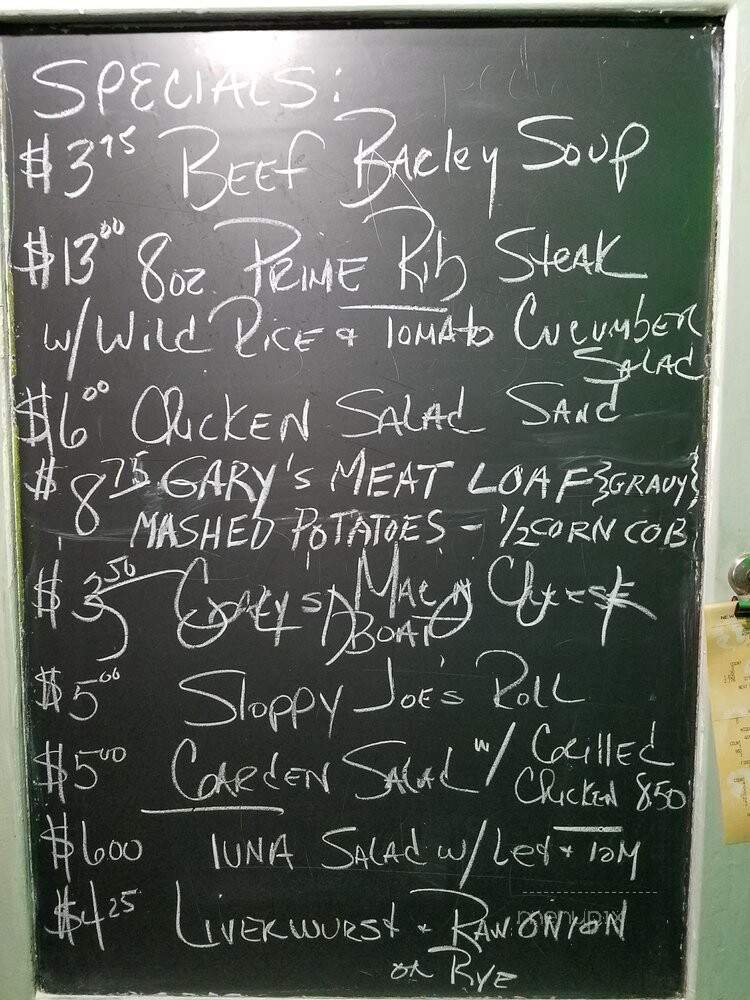 SPECIALS:
$3.75 BEEF BARLEY SOUP
$13.00 8oz PRIME Rib STEAK
w/Wild RICE & TOMATO CUCUMBER
SALAD
$6.00 CHICKEN SALAD SAND
$8.75 GARY'S MEAT LOAF {GRAVY}
MASHED POTATOES - 1/2 CORN COB
$3.50 Gary's Mac n Cheese
BOAT
$5.00 Sloppy Joe's Roll
$5.00 GARDEN SALAD w/ GRILLED
CHICKEN 8.50
$6.00 TUNA SALAD w/ Let & TOM
$4.25 LIVERWURST & RAW ONION
on RYE
menupix